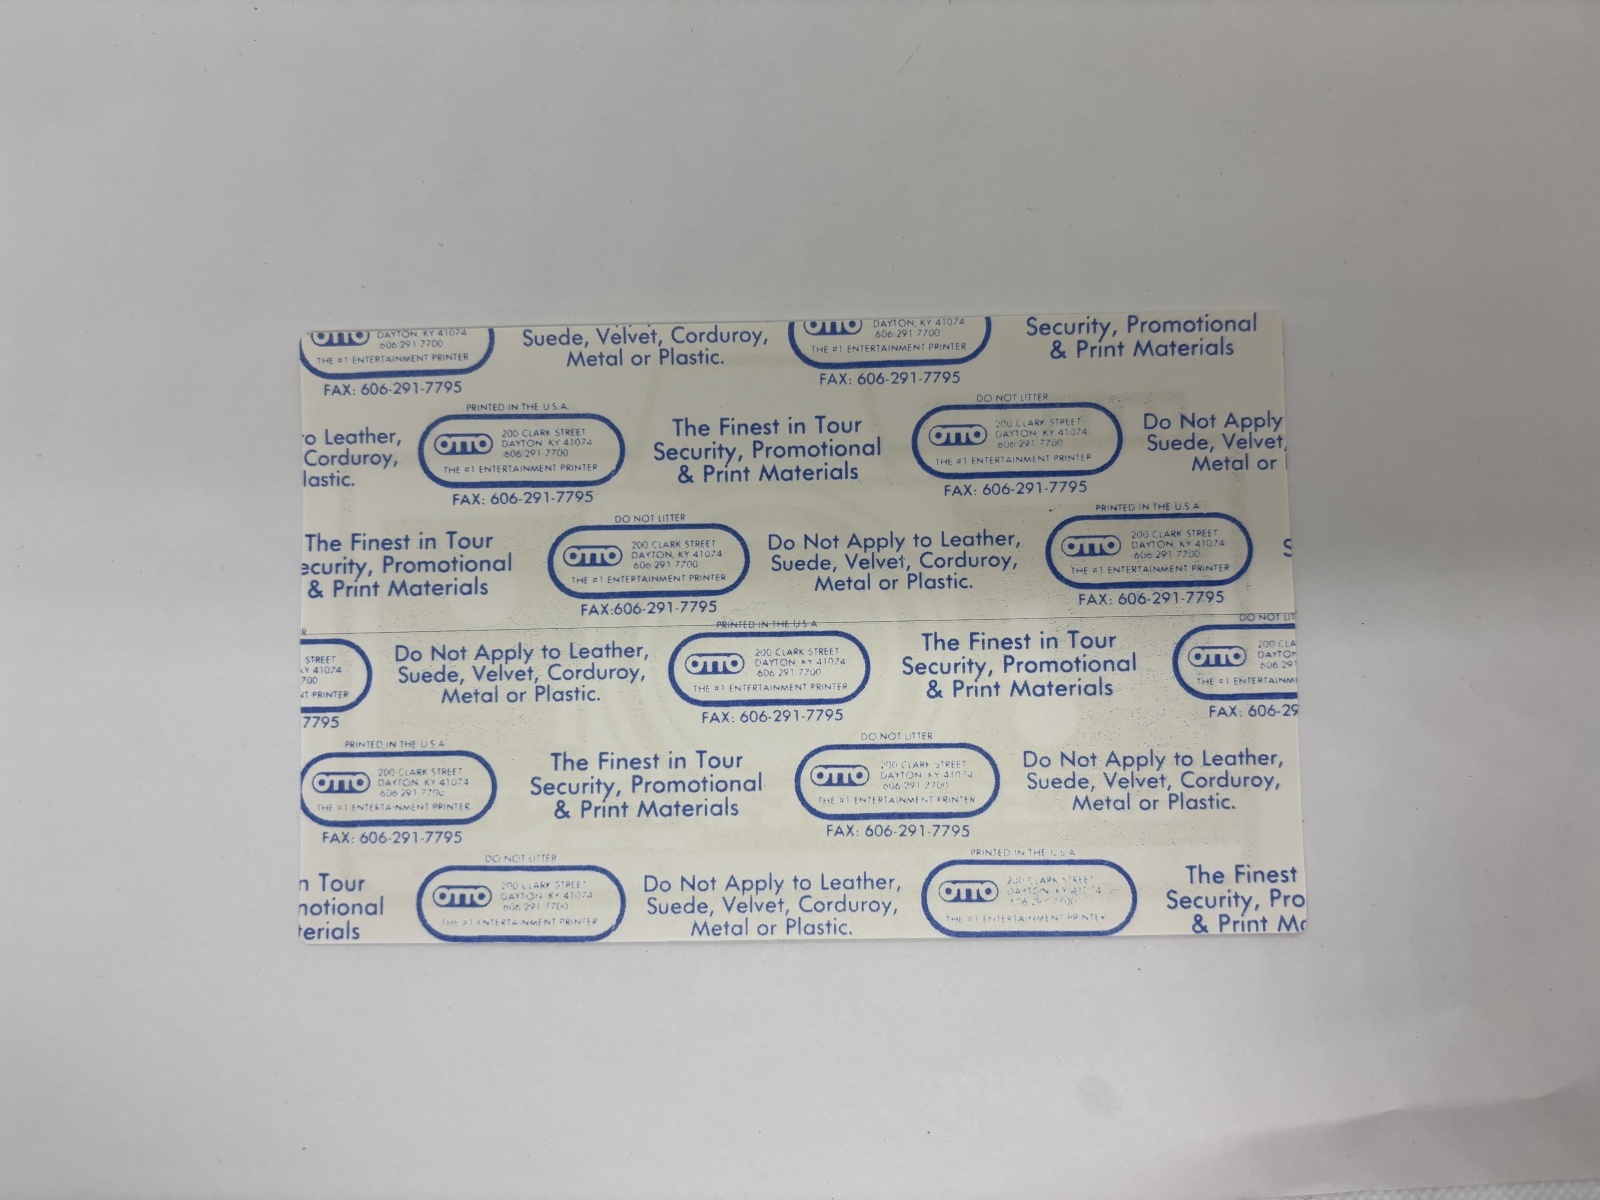 OTTO
DAYTON, KY 41074
606 291 7700
THE #1 ENTERTAINMENT PRINTER
FAX: 606-291-7795
Suede, Velvet, Corduroy,
Metal or Plastic.
OTTO
DAYTON, KY 41074
606 291 7700
THE #1 ENTERTAINMENT PRINTER
FAX: 606-291-7795
Security, Promotional
& Print Materials
o Leather,
Corduroy,
lastic.
PRINTED IN THE U.S.A.
OTTO
200 CLARK STREET
DAYTON, KY 41074
606 291 7700
THE #1 ENTERTAINMENT PRINTER
FAX: 606-291-7795
The Finest in Tour
Security, Promotional
& Print Materials
DO NOT LITTER
OTTO
200 CLARK STREET
DAYTON, KY 41074
606 291 7700
THE #1 ENTERTAINMENT PRINTER
FAX: 606-291-7795
Do Not Apply
Suede, Velvet,
Metal or
The Finest in Tour
ecurity, Promotional
& Print Materials
DO NOT LITTER
OTTO
200 CLARK STREET
DAYTON, KY 41074
606 291 7700
THE #1 ENTERTAINMENT PRINTER
FAX:606-291-7795
Do Not Apply to Leather,
Suede, Velvet, Corduroy,
Metal or Plastic.
PRINTED IN THE U.S.A.
OTTO
200 CLARK STREET
DAYTON, KY 41074
606 291 7700
THE #1 ENTERTAINMENT PRINTER
FAX: 606-291-7795
S
R
STREET
KY 41074
700
NT PRINTER
7795
Do Not Apply to Leather,
Suede, Velvet, Corduroy,
Metal or Plastic.
PRINTED IN THE U.S.A.
OTTO
200 CLARK STREET
DAYTON, KY 41074
606 291 7700
THE #1 ENTERTAINMENT PRINTER
FAX: 606-291-7795
The Finest in Tour
Security, Promotional
& Print Materials
DO NOT LIT
OTTO
200 CLA
DAYTON
606 291
THE #1 ENTERTAINM
FAX: 606-29
PRINTED IN THE U.S.A.
OTTO
200 CLARK STREET
DAYTON, KY 41074
606 291 7700
THE #1 ENTERTAINMENT PRINTER
FAX: 606-291-7795
The Finest in Tour
Security, Promotional
& Print Materials
DO NOT LITTER
OTTO
200 CLARK STREET
DAYTON, KY 41074
606 291 7700
THE #1 ENTERTAINMENT PRINTER
FAX: 606-291-7795
Do Not Apply to Leather,
Suede, Velvet, Corduroy,
Metal or Plastic.
n Tour
notional
terials
DO NOT LITTER
OTTO
200 CLARK STREET
DAYTON, KY 41074
606 291 7700
THE #1 ENTERTAINMENT PRINTER
Do Not Apply to Leather,
Suede, Velvet, Corduroy,
Metal or Plastic.
PRINTED IN THE U.S.A.
OTTO
200 CLARK STREET
DAYTON, KY 41074
THE #1 ENTERTAINMENT PRINTER
The Finest
Security, Pro
& Print Ma